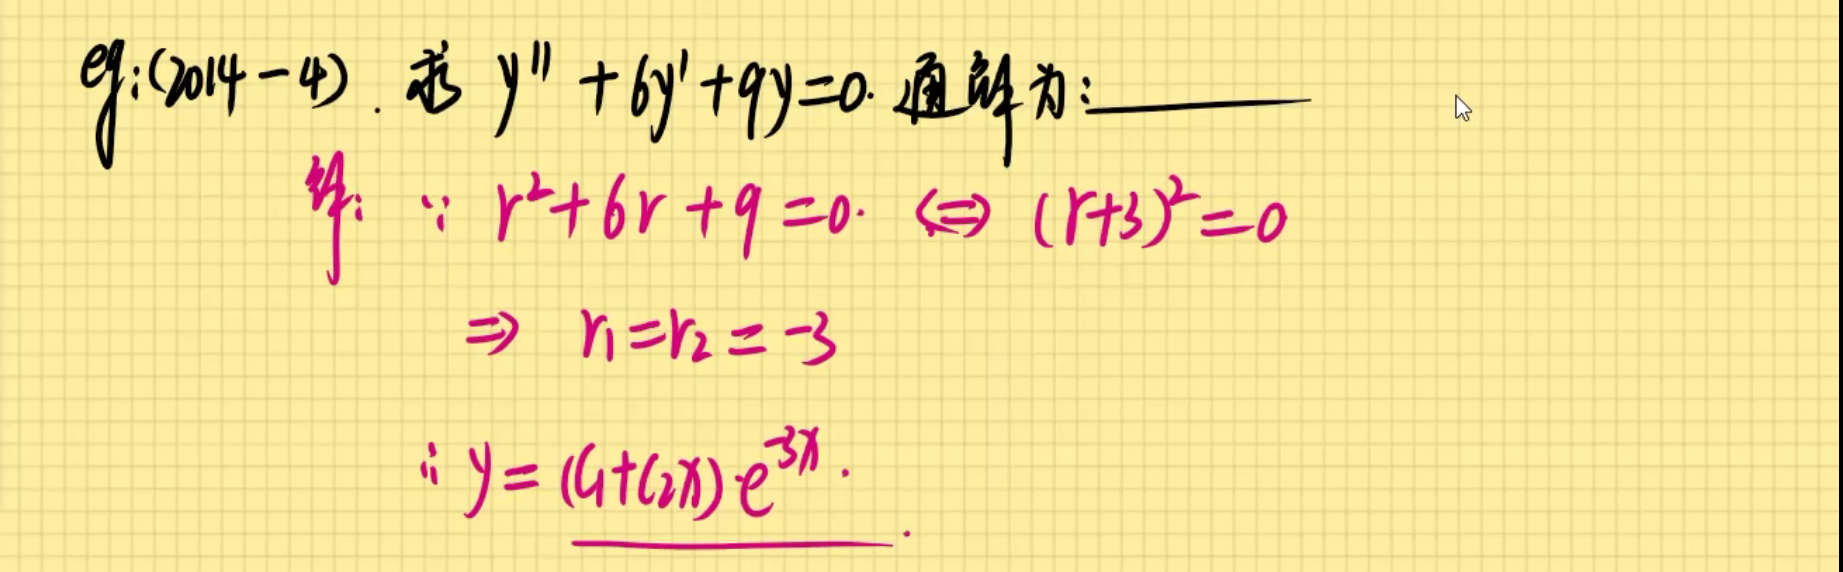 eg:(2014-4). 求 y''+6y'+9y=0. 通解为:______
解: ∵ r²+6r+9=0. ⇔ (r+3)²=0
⇒ r₁=r₂=-3
∴ y=(C₁+C₂x)·e⁻³ˣ.